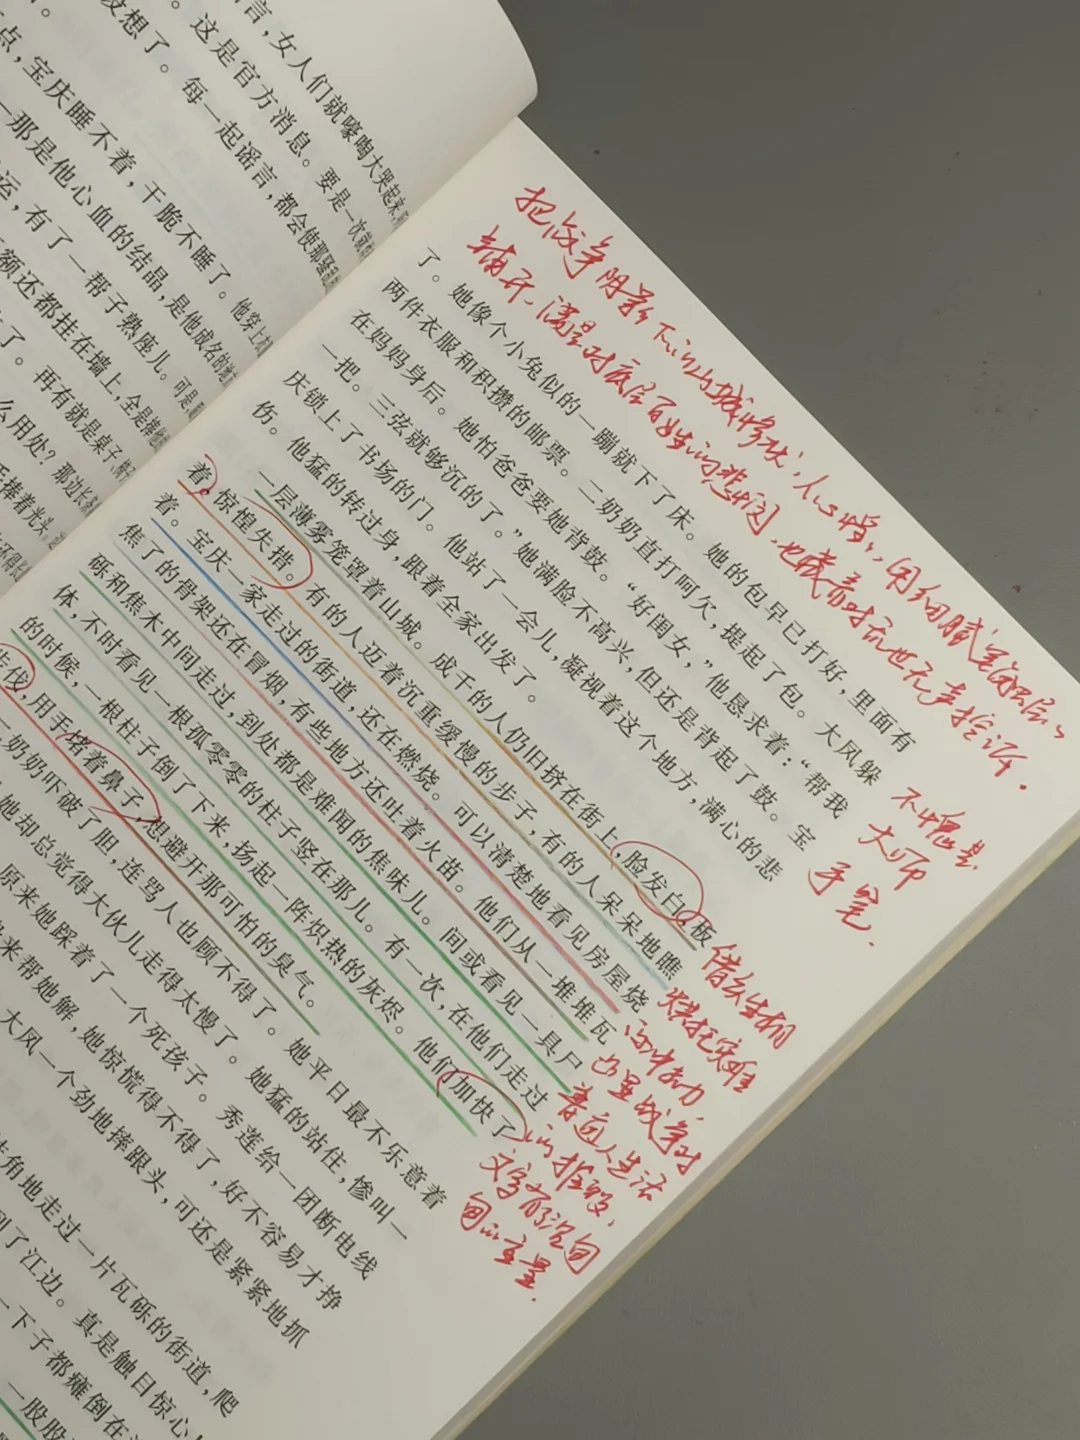 言，女人们就嚎啕大哭起来，
。这是官方消息。要是一次
没想了。每一起谣言，都会使那
点，宝庆睡不着，干脆不睡了。他穿上
一那是他心血的结晶，是他成名的
运，有了一帮子熟座儿。可是
额还都挂在墙上，全是
了。再有就是桌子
么用处？那边长
手捧着光头，
把战争阴影下的山城惨状，人心惶惶，用细腻笔触层层
铺开，满是对底层百姓的悲悯，也藏着对乱世无声控诉。
不愧是
大师
手笔。
了。她像个小兔似的一蹦就下了床。她的包早已打好，里面有
两件衣服和积攒的邮票。二奶奶直打呵欠，提起了包。大凤躲
在妈妈身后。她怕爸爸要她背鼓。“好闺女，”他恳求着：“帮我
一把。三弦就够沉的了。”她满脸不高兴，但还是背起了鼓。宝
庆锁上了书场的门。他站了一会儿，凝视着这个地方，满心的悲
伤。他猛的转过身，跟着全家出发了。
一层薄雾笼罩着山城。成千的人仍旧挤在街上，脸发白，板
着，惊惶失措。有的人迈着沉重缓慢的步子，有的人呆呆地瞧
着。宝庆一家走过的街道，还在燃烧。可以清楚地看见房屋烧
焦了的骨架还在冒烟，有些地方还吐着火苗。他们从一堆堆瓦
砾和焦木中间走过，到处都是难闻的焦味儿。间或看见一具尸
体，不时看见一根孤零零的柱子竖在那儿。有一次，在他们走过
的时候，一根柱子倒了下来，扬起一阵炽热的灰烬。他们加快了
步伐，用手捂着鼻子，想避开那可怕的臭气。
奶奶吓破了胆，连骂人也顾不得了。她平日最不乐意着
她却总觉得大伙儿走得太慢了。她猛的站住，惨叫一
原来她踩着了一个死孩子。秀莲给一团断电线
来帮她解，她惊慌得不得了，好不容易才挣
大凤一个劲地摔跟头，可还是紧紧地抓
角地走过一片瓦砾的街道，爬
到了江边。真是触目惊心！
一下子都瘫倒在
一股股
借众生相
烘托灾难
的冲击力，
凸显战争对
普通人生活
的摧毁，
文字有沉甸
甸的重量。